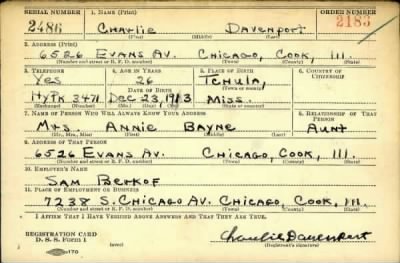 SERIAL NUMBER 1. NAME (Print) ORDER NUMBER
2486 Charlie Davenport 2183
(First) (Middle) (Last)
2. ADDRESS (Print)
6526 Evans Av. Chicago, Cook, Ill.
(Number and street or R. F. D. number) (Town) (County) (State)
3. TELEPHONE 4. AGE IN YEARS 5. PLACE OF BIRTH 6. COUNTRY OF CITIZENSHIP
Yes 26 Tchula,
DATE OF BIRTH (Town or county)
HyPk 3471 Dec 23 1913 Miss.
(Exchange) (Number) (Mo.) (Day) (Yr.) (State or country)
7. NAME OF PERSON WHO WILL ALWAYS KNOW YOUR ADDRESS 8. RELATIONSHIP OF THAT PERSON
Mrs. Annie Bayne Aunt
(Mr., Mrs., Miss) (First) (Middle) (Last)
9. ADDRESS OF THAT PERSON
6526 Evans Av. Chicago, Cook, Ill.
(Number and street or R. F. D. number) (Town) (County) (State)
10. EMPLOYER'S NAME
Sam Berkof
11. PLACE OF EMPLOYMENT OR BUSINESS
7238 S. Chicago Av. Chicago, Cook, Ill.
(Number and street or R. F. D. number) (Town) (County) (State)
I AFFIRM THAT I HAVE VERIFIED ABOVE ANSWERS AND THAT THEY ARE TRUE.
REGISTRATION CARD
D. S. S. Form 1
Charlie Davenport
(Registrant's signature)